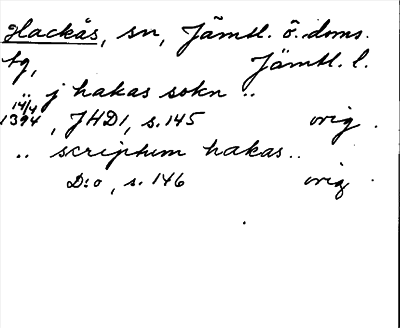 Hackås, sn, Jämtl. ö. doms.
tg, Jämtl. l.
.. j hakas sokn ..
14/4 1394, JHD1, s. 145 orig.
.. scriptum hakas ..
D:o, s. 146 orig.